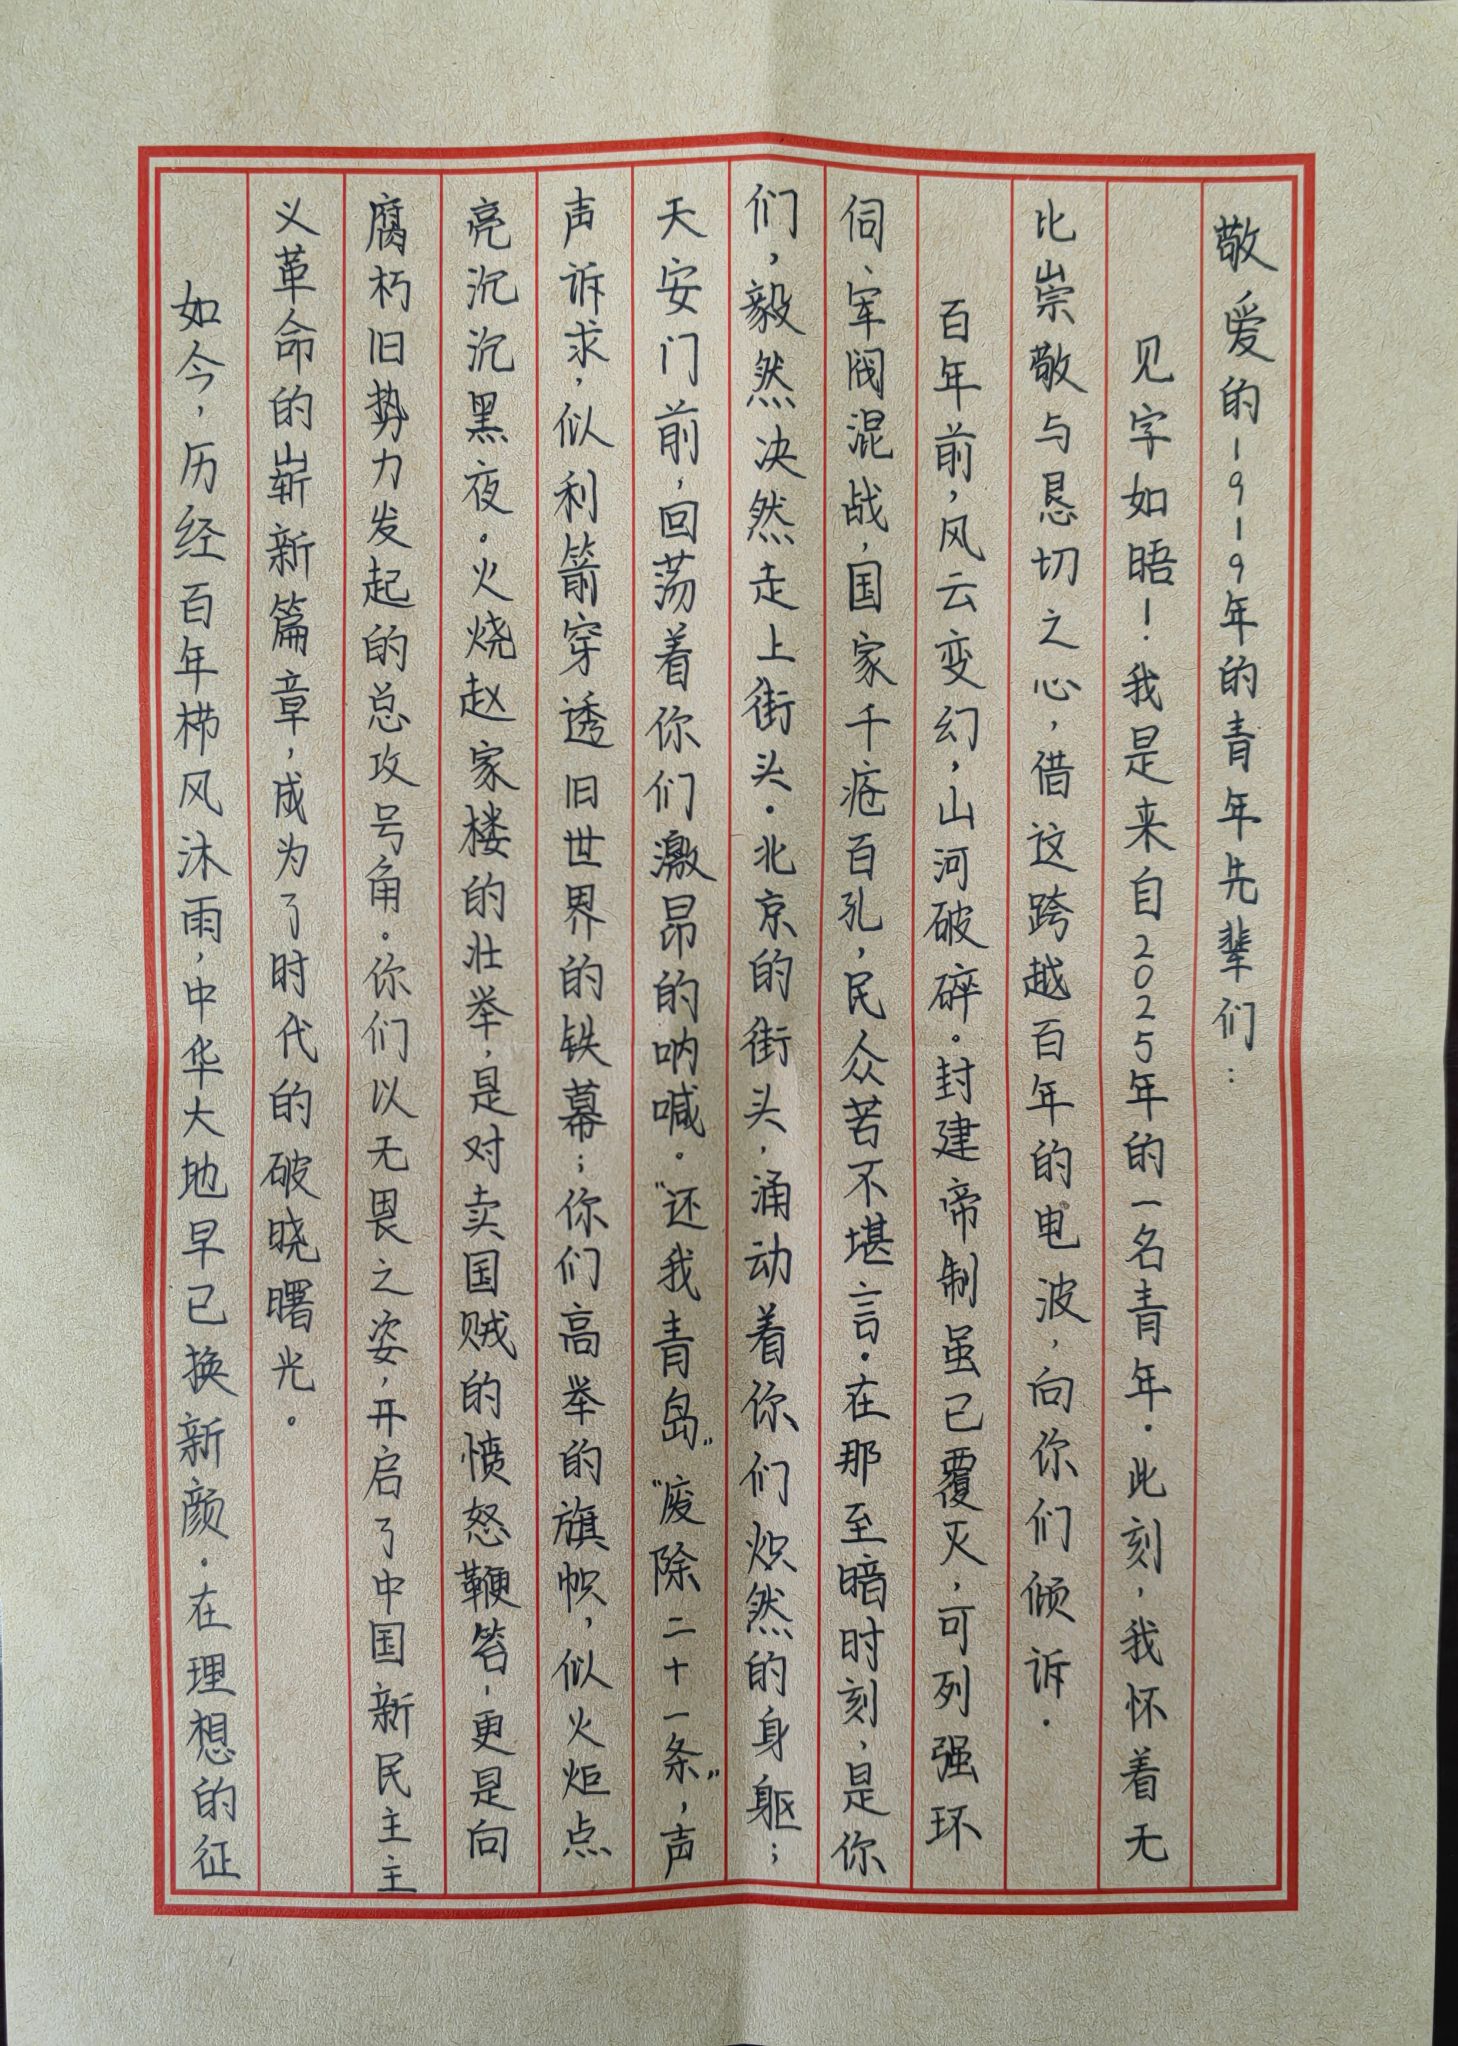 敬爱的1919年的青年先辈们：
见字如晤！我是来自2025年的一名青年。此刻，我怀着无
比崇敬与恳切之心，借这跨越百年的电波，向你们倾诉。
百年前，风云变幻，山河破碎。封建帝制虽已覆灭，可列强环
伺、军阀混战，国家千疮百孔，民众苦不堪言。在那至暗时刻，是你
们，毅然决然走上街头。北京的街头，涌动着你们炽然的身躯；
天安门前，回荡着你们激昂的呐喊。“还我青岛”“废除二十一条”，声
声诉求，似利箭穿透旧世界的铁幕；你们高举的旗帜，似火炬点
亮沉沉黑夜。火烧赵家楼的壮举，是对卖国贼的愤怒鞭笞，更是向
腐朽旧势力发起的总攻号角。你们以无畏之姿，开启了中国新民主主
义革命的崭新篇章，成为了时代的破晓曙光。
如今，历经百年栉风沐雨，中华大地早已换新颜。在理想的征